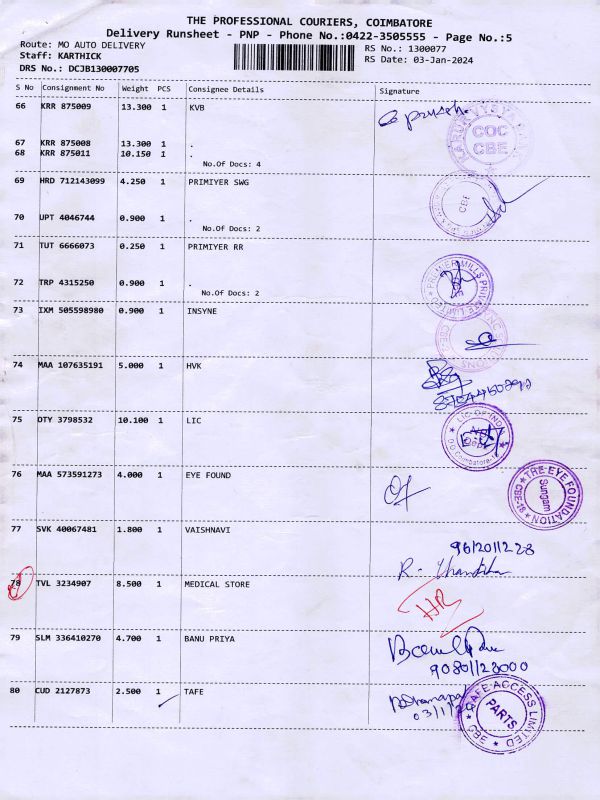 THE PROFESSIONAL COURIERS, COIMBATORE
Delivery Runsheet - PNP - Phone No.:0422-3505555 - Page No.:5
Route: MO AUTO DELIVERY RS No.: 1300077
Staff: KARTHICK RS Date: 03-Jan-2024
DRS No.: DCJB130007705
S No Consignment No Weight PCS Consignee Details Signature
66 KRR 875009 13.300 1 KVB
COC
CBE
67 KRR 875008 13.300 1 .
68 KRR 875011 10.150 1 .
No.Of Docs: 4
69 HRD 712143099 4.250 1 PRIMIYER SWG
CBE
70 UPT 4046744 0.900 1 .
No.Of Docs: 2
71 TUT 6666073 0.250 1 PRIMIYER RR
PREMIER MILLS PRIVATE LIMITED
72 TRP 4315250 0.900 1 .
No.Of Docs: 2
73 IXM 505598980 0.900 1 INSYNE
74 MAA 107635191 5.000 1 HVK
75 OTY 3798532 10.100 1 LIC
LIC OF INDIA
76 MAA 573591273 4.000 1 EYE FOUND
THE EYE FOUNDATION
Sungam
CBE-18
77 SVK 40067481 1.800 1 VAISHNAVI
78 TVL 3234907 8.500 1 MEDICAL STORE
79 SLM 336410270 4.700 1 BANU PRIYA
90801123000
80 CUD 2127873 2.500 1 TAFE
TAFE ACCESS LIMITED
PARTS
CBE